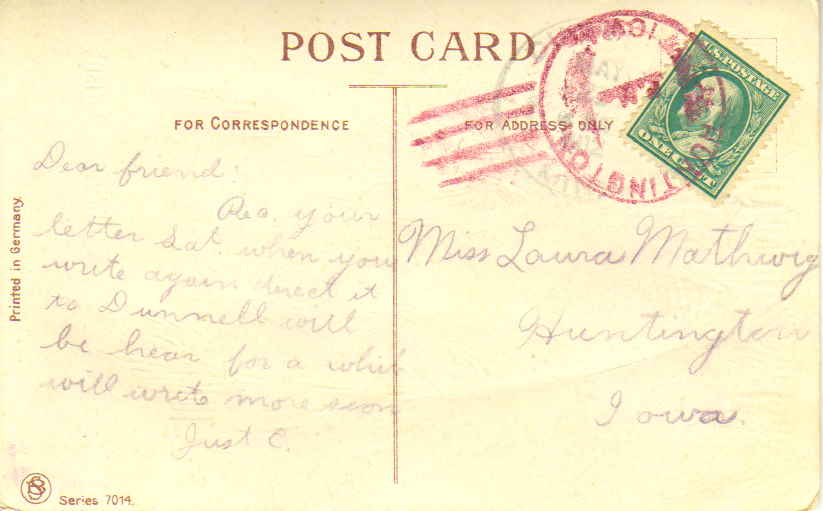 POST CARD
FOR CORRESPONDENCE
FOR ADDRESS ONLY
U.S. POSTAGE
ONE CENT
Dear friend:
Rec. your
letter Sat. when you
write again direct it
to Dunnell will
be hear for a whil
will write more soon
Just C.
Miss Laura Mathwig
Huntington
Iowa.
Printed in Germany.
Series 7014.